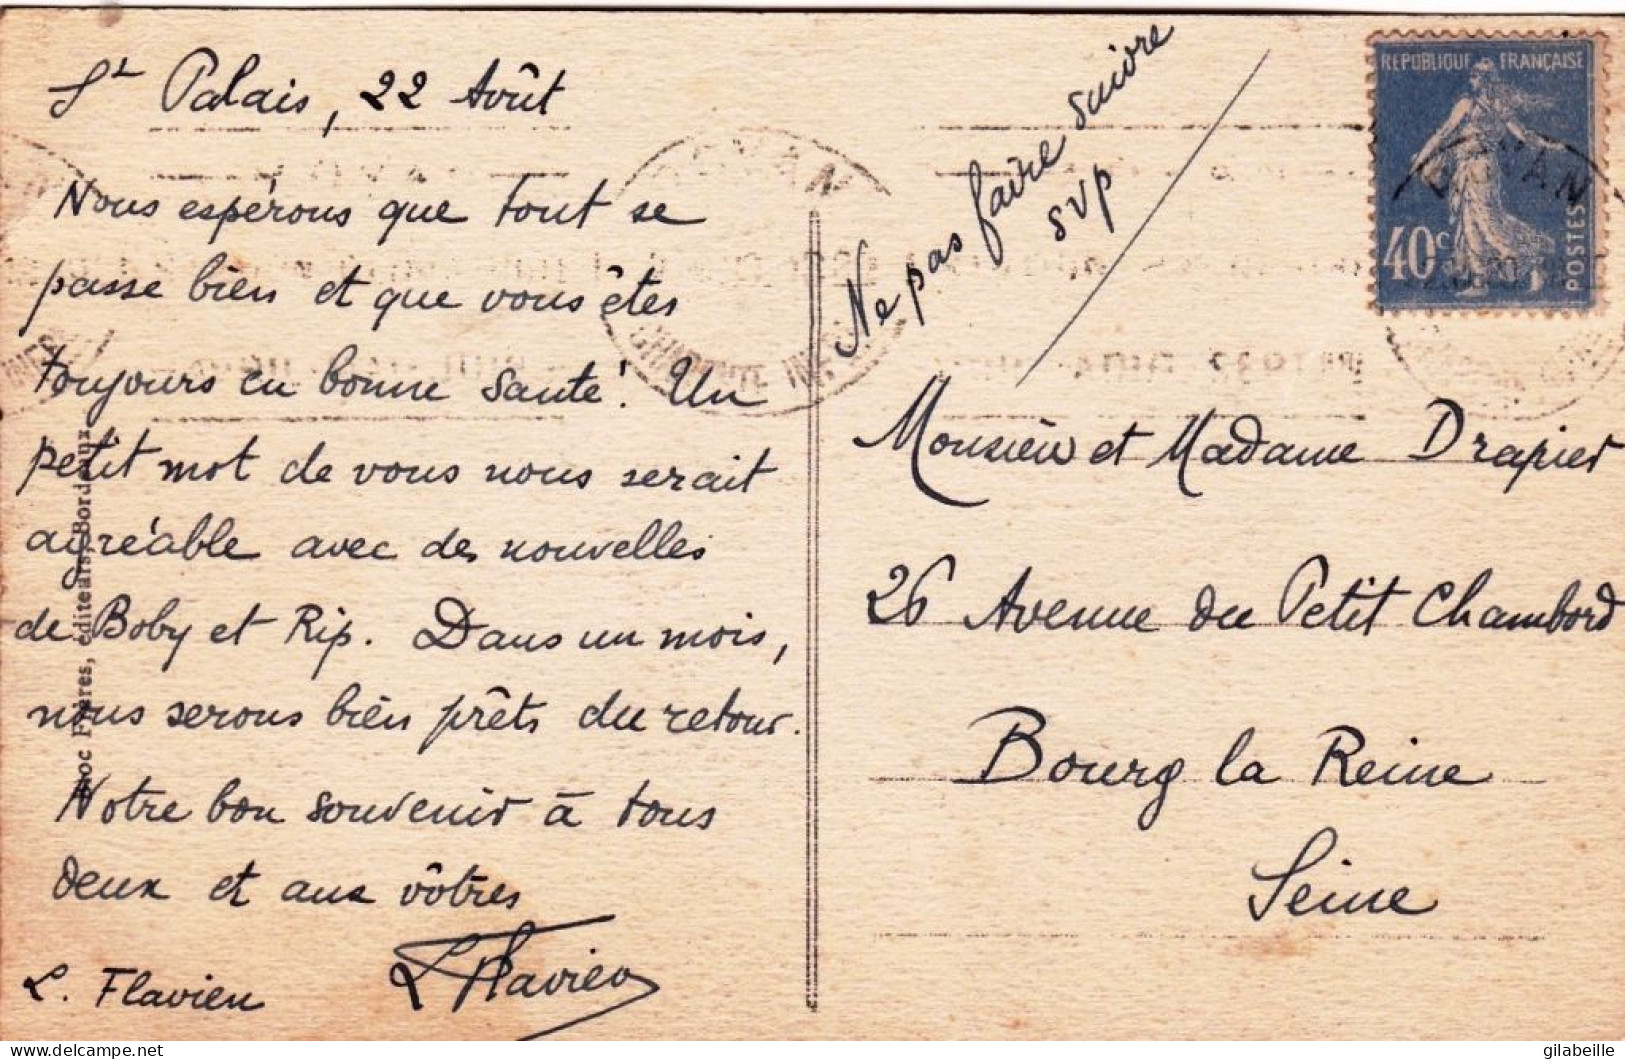 St Palais, 22 Août
Nous espérons que tout se
passe bien et que vous êtes
toujours en bonne santé. Un
petit mot de vous nous serait
agréable avec des nouvelles
de Boby et Rip. Dans un mois,
nous serons bien prêts du retour.
Notre bon souvenir à tous
deux et aux vôtres
L. Flavien
L Flavien
Frères, éditeurs, Bordeaux
Ne pas faire suivre
svp
REPUBLIQUE FRANÇAISE
40c
POSTES
ROYAN
CHARENTE INF.
Monsieur et Madame Drapier
26 Avenue du Petit Chambord
Bourg la Reine
Seine
delcampe.net
gilabeille